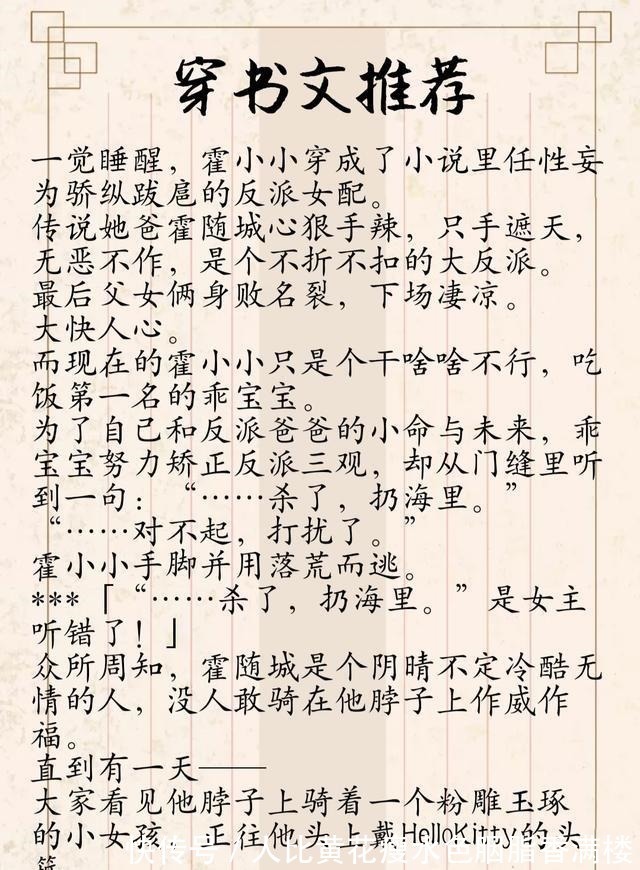 穿书文推荐
一觉睡醒，霍小小穿成了小说里任性妄
为骄纵跋扈的反派女配。
传说她爸霍随城心狠手辣，只手遮天，
无恶不作，是个不折不扣的大反派。
最后父女俩身败名裂，下场凄凉。
大快人心。
而现在的霍小小只是个干啥啥不行，吃
饭第一名的乖宝宝。
为了自己和反派爸爸的小命与未来，乖
宝宝努力矫正反派三观，却从门缝里听
到一句：“……杀了，扔海里。”
“……对不起，打扰了。”
霍小小手脚并用落荒而逃。
***「“……杀了，扔海里。”是女主
听错了！」
众所周知，霍随城是个阴晴不定冷酷无
情的人，没人敢骑在他脖子上作威作
福。
直到有一天——
大家看见他脖子上骑着一个粉雕玉琢
的小女孩，正往他头上戴HelloKitty的头
快传号/人比黄花瘦水色胭脂香满楼